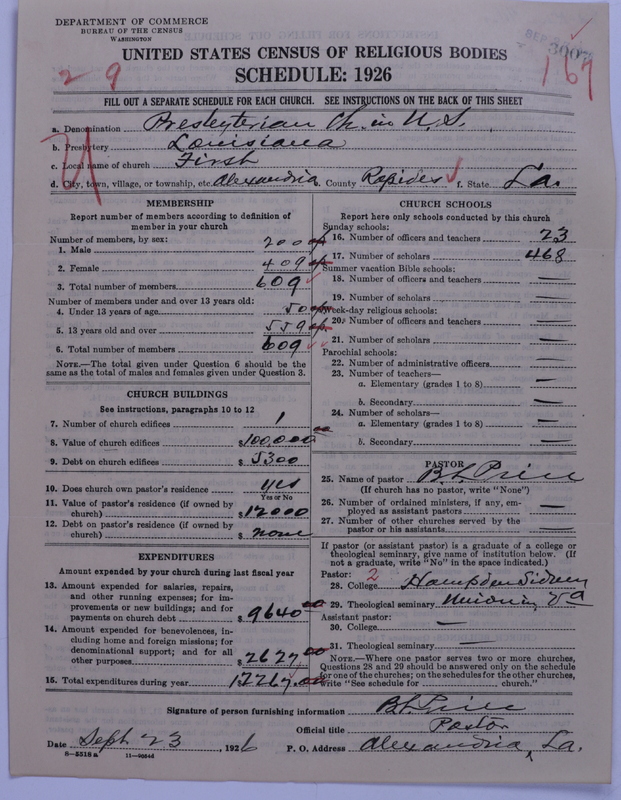 DEPARTMENT OF COMMERCE
BUREAU OF THE CENSUS
WASHINGTON
UNITED STATES CENSUS OF RELIGIOUS BODIES
SCHEDULE: 1926
2 9
167
FILL OUT A SEPARATE SCHEDULE FOR EACH CHURCH. SEE INSTRUCTIONS ON THE BACK OF THIS SHEET
a. Denomination Presbyterian Ch. in U.S.
b. Presbytery Louisiana
c. Local name of church First
d. City, town, village, or township, etc. Alexandria County Rapides f. State La.
MEMBERSHIP
Report number of members according to definition of member in your church
Number of members, by sex:
1. Male 200
2. Female 409
3. Total number of members 609
Number of members under and over 13 years old:
4. Under 13 years of age 50
5. 13 years old and over 559
6. Total number of members 609
NOTE.—The total given under Question 6 should be the same as the total of males and females given under Question 3.
CHURCH BUILDINGS
See instructions, paragraphs 10 to 12
7. Number of church edifices 1
8. Value of church edifices $100,000
9. Debt on church edifices $5300
10. Does church own pastor's residence yes
Yes or No
11. Value of pastor's residence (if owned by church) $12000
12. Debt on pastor's residence (if owned by church) $none
EXPENDITURES
Amount expended by your church during last fiscal year
13. Amount expended for salaries, repairs, and other running expenses; for improvements or new buildings; and for payments on church debt $9640
14. Amount expended for benevolences, including home and foreign missions; for denominational support; and for all other purposes $2627.00
15. Total expenditures during year 12267.00
CHURCH SCHOOLS
Report here only schools conducted by this church
Sunday schools:
16. Number of officers and teachers 23
17. Number of scholars 468
Summer vacation Bible schools:
18. Number of officers and teachers —
19. Number of scholars —
Week-day religious schools:
20. Number of officers and teachers —
21. Number of scholars —
Parochial schools:
22. Number of administrative officers —
23. Number of teachers—
a. Elementary (grades 1 to 8) —
b. Secondary —
24. Number of scholars—
a. Elementary (grades 1 to 8) —
b. Secondary —
PASTOR
25. Name of pastor B L Price
(If church has no pastor, write "None")
26. Number of ordained ministers, if any, employed as assistant pastors —
27. Number of other churches served by the pastor or his assistants —
If pastor (or assistant pastor) is a graduate of a college or theological seminary, give name of institution below. (If not a graduate, write "No" in the space indicated.)
Pastor: 2
28. College Hampden Sidney
29. Theological seminary Union in Va
Assistant pastor:
30. College —
31. Theological seminary —
NOTE.—Where one pastor serves two or more churches, Questions 28 and 29 should be answered only on the schedule for one of the churches; on the schedules for the other churches, write "See schedule for church."
Signature of person furnishing information B L Price
Official title Pastor
Date Sept 23, 1926 P. O. Address Alexandria, La.
8—5518a 11—9064d